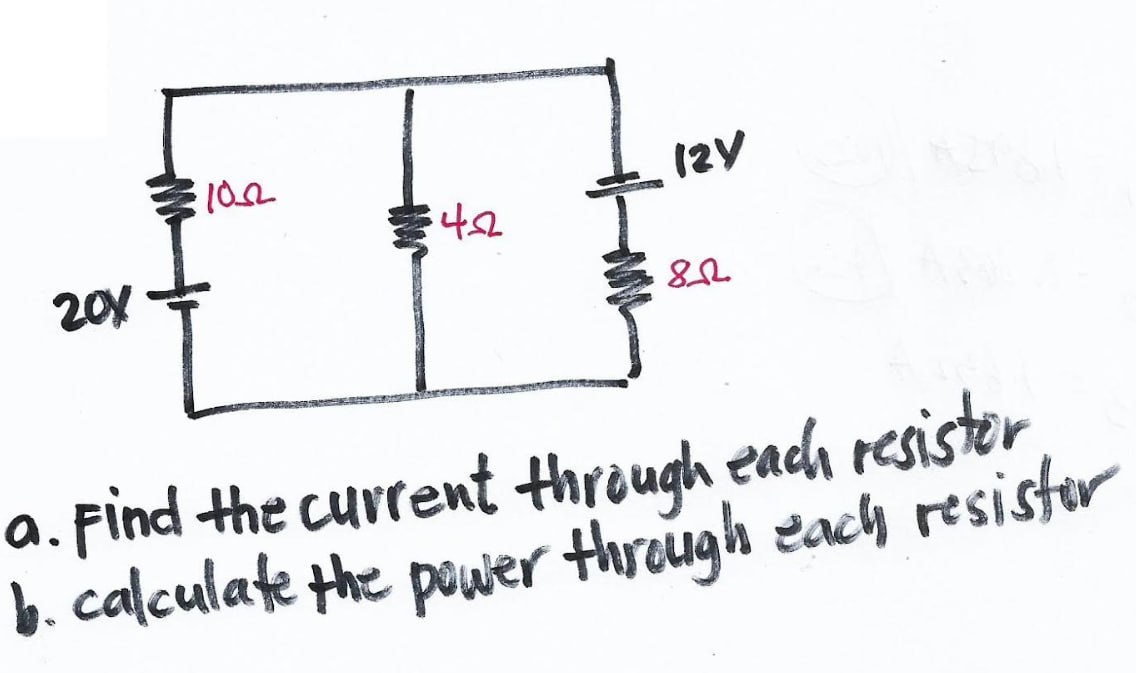 12V
10Ω
4Ω
8Ω
20V
a. Find the current through each resistor
b. calculate the power through each resistor